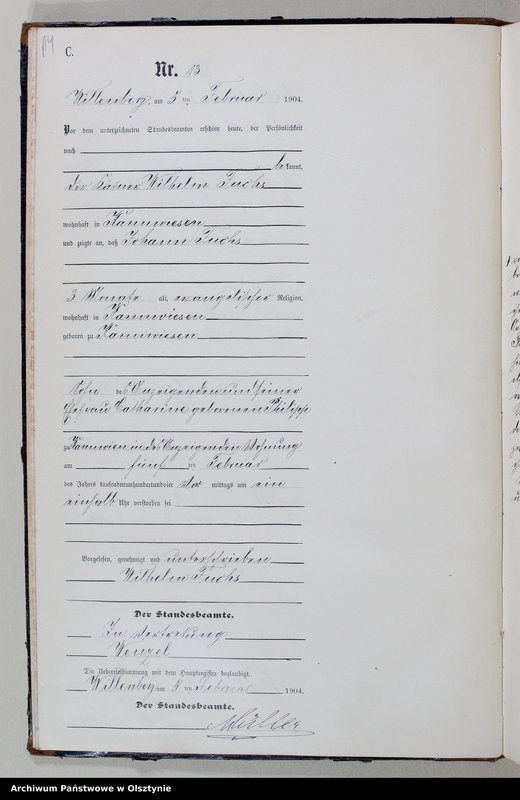 C.
Nr. 13
Willenberg, am 5 ten Februar 1904.
Vor dem unterzeichneten Standesbeamten erschien heute, der Persönlichkeit
nach
bekannt,
der Kätner Wilhelm Fuchs
wohnhaft in
und zeigte an, daß Johann Fuchs
3 Monate alt, evangelischer Religion,
wohnhaft in
geboren zu
Sohn des Anzeigenden und seiner
Ehefrau Catharine geborenen Philipp
zu in des Anzeigenden Wohnung
am fünf ten Februar
des Jahres tausendneunhundertundvier Vor mittags um ein
einhalb Uhr verstorben sei
Vorgelesen, genehmigt und unterschrieben
Wilhelm Fuchs
Der Standesbeamte.
In Vertretung
Wenzel
Die Uebereinstimmung mit dem Hauptregister beglaubigt.
Willenberg am 5 ten Februar 1904.
Der Standesbeamte.
Archiwum Państwowe w Olsztynie